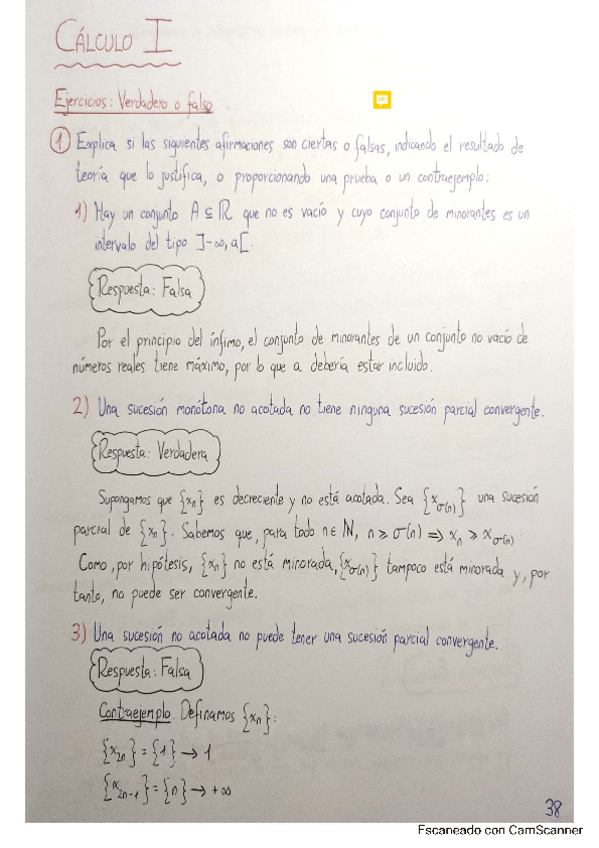 CÁLCULO I
Ejercicios: Verdadero o falso
1 Explica si las siguientes afirmaciones son ciertas o falsas, indicando el resultado de
teoría que lo justifica, o proporcionando una prueba o un contraejemplo:
1) Hay un conjunto A ⊆ ℝ que no es vacío y cuyo conjunto de minorantes es un
intervalo del tipo ]-∞, a[.
Respuesta: Falsa
Por el principio del ínfimo, el conjunto de minorantes de un conjunto no vacío de
números reales tiene máximo, por lo que a debería estar incluido.
2) Una sucesión monótona no acotada no tiene ninguna sucesión parcial convergente.
Respuesta: Verdadera
Supongamos que {xₙ} es decreciente y no está acotada. Sea {x_σ(n)} una sucesión
parcial de {xₙ}. Sabemos que, para todo n∈ℕ, n ≥ σ(n) ⇒ xₙ ≥ x_σ(n).
Como, por hipótesis, {xₙ} no está minorada, {x_σ(n)} tampoco está minorada y, por
tanto, no puede ser convergente.
3) Una sucesión no acotada no puede tener una sucesión parcial convergente.
Respuesta: Falsa
Contraejemplo. Definamos {xₙ}:
{x₂ₙ} = {1} → 1
{x₂ₙ₋₁} = {n} → +∞
38
Escaneado con CamScanner